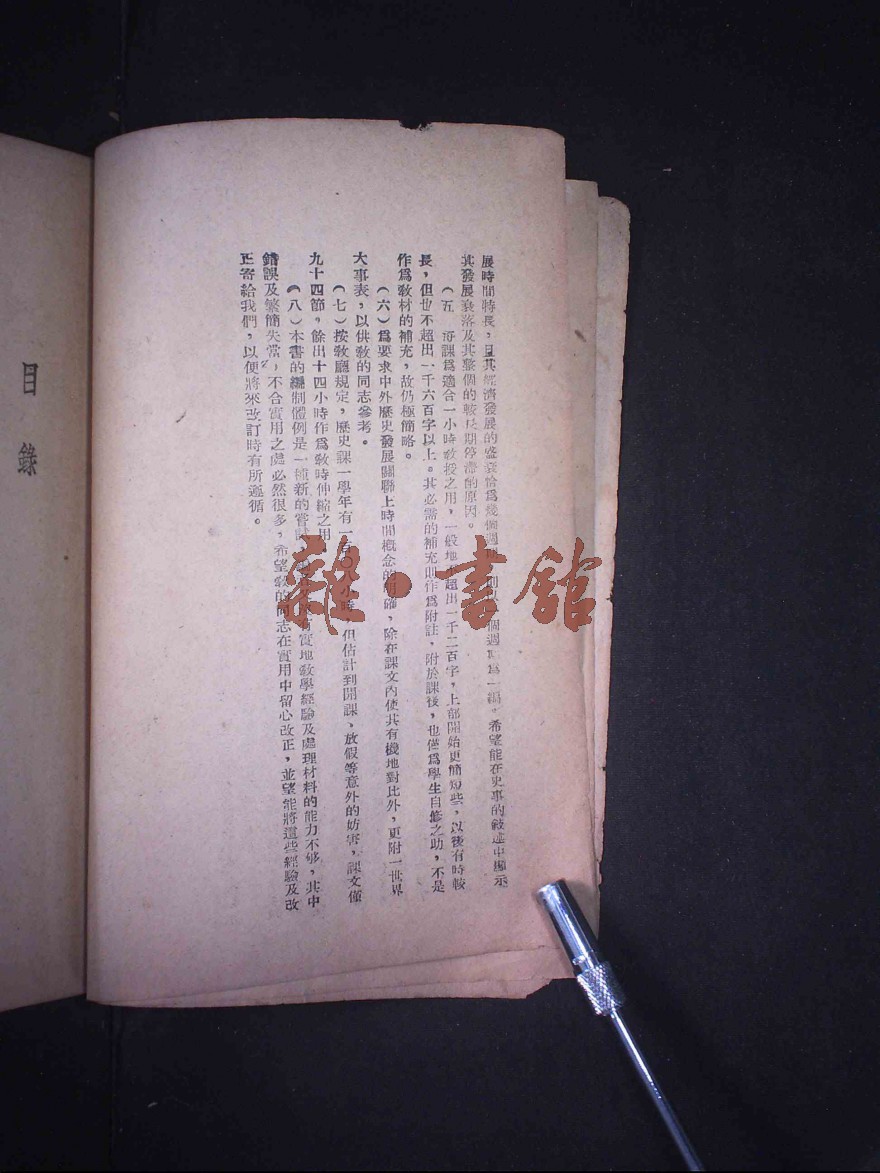 展時間特長，且其經濟發展的盛衰恰爲幾個週期，則以一個週期爲一編。希望能在史事的敍述中顯示
其發展衰落及其整個的較長期停滯的原因。
（五）每課爲適合一小時教授之用，一般地不超出一千二百字，上部開始更簡短些，以後有時較
長，但也不超出一千六百字以上。其必需的補充則作爲附註，附於課後，也僅爲學生自修之助，不是
作爲教材的補充，故仍極簡略。
（六）爲要求中外歷史發展關聯上時間概念的明確，除在課文內使其有機地對比外，更附一世界
大事表，以供教的同志參考。
（七）按教廳規定，歷史課一學年有一百〇八小時，但估計到開課、放假等意外的妨害，課文僅
九十四節。餘出十四小時作爲教時伸縮之用
（八）本書的編制體例是一種新的嘗試 有實地教學經驗及處理材料的能力不够，其中
錯誤及繁簡失當，不合實用之處必然很多，希望教的同志在實用中留心改正，並望能將這些經驗及改
正寄給我們，以便將來改訂時有所遵循。
目錄
雜·書館